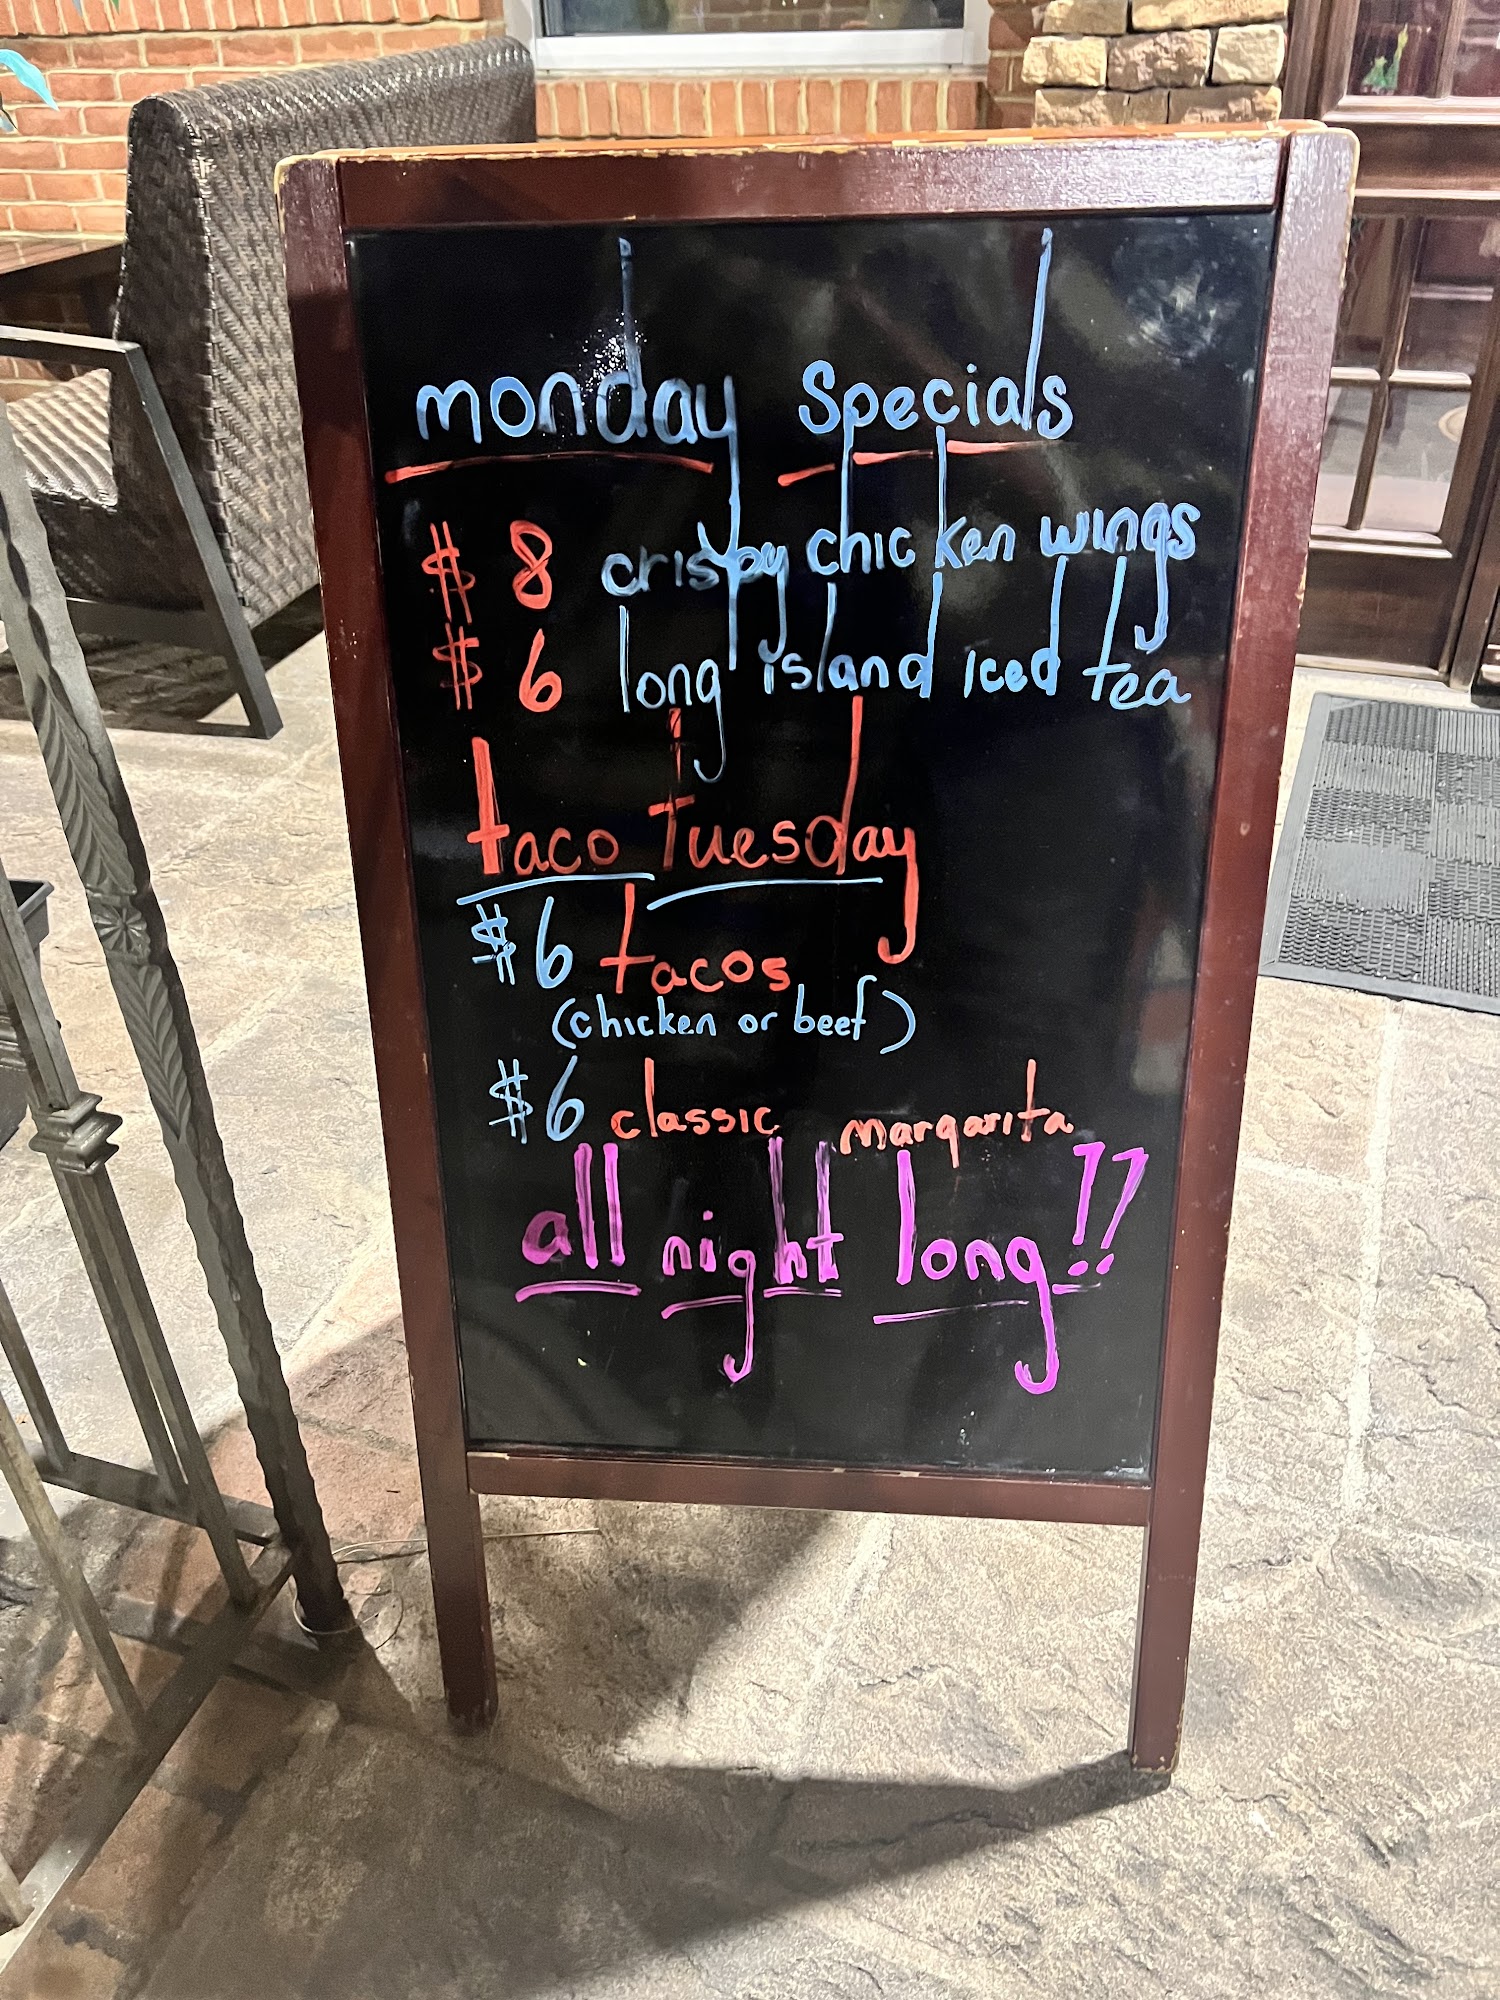 monday specials
$8 crispy chicken wings
$6 long island iced tea
taco Tuesday
$6 tacos
(chicken or beef)
$6 classic margarita
all night long!!